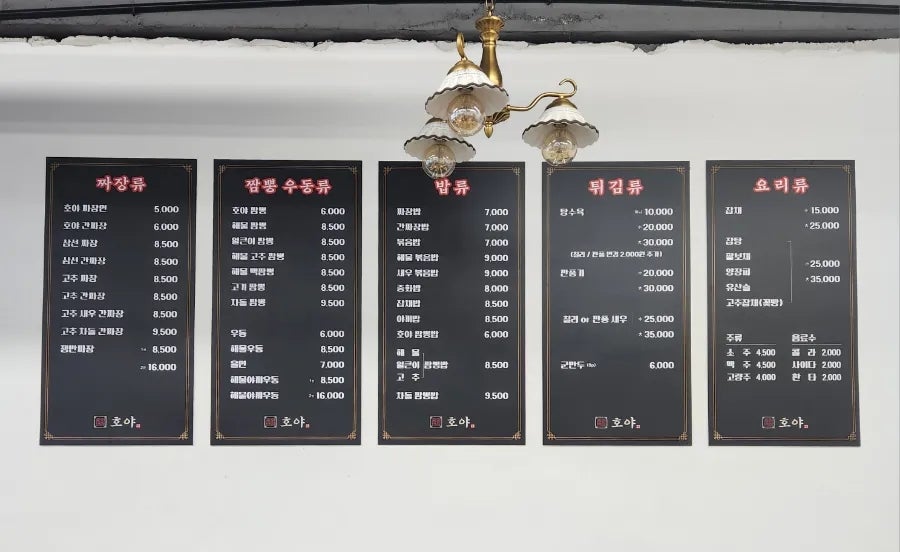 짜장류
호야 짜장면 5.000
호야 간짜장 6.000
삼선 짜장 8.500
삼선 간짜장 8.500
고추 짜장 8.500
고추 간짜장 8.500
고추 새우 간짜장 8.500
고추 차돌 간짜장 9.500
쟁반짜장 8.500
16.000
호야
짬뽕 우동류
호야 짬뽕 6.000
해물 짬뽕 8.500
얼큰이 짬뽕 8.500
해물 고추 짬뽕 8.500
해물 백짬뽕 8.500
고기 짬뽕 8.500
차돌 짬뽕 9.500
우동 6.000
해물우동 8.500
울면 7.000
해물야끼우동 8.500
해물야끼우동 16.000
호야
밥류
짜장밥 7,000
간짜장밥 7,000
볶음밥 7,000
해물 볶음밥 9,000
새우 볶음밥 9,000
중화밥 8,000
잡채밥 8,500
야끼밥 8,500
호야 짬뽕밥 6,000
해물
얼큰이 짬뽕밥 8,500
고추
차돌 짬뽕밥 9,500
호야
튀김류
탕수육 10,000
20,000
30,000
(칠리 / 깐풍 변경 2,000원 추가)
깐풍기 20,000
30,000
칠리 or 깐풍 새우 25,000
35,000
군만두 6,000
호야
요리류
잡채 15,000
25,000
잡탕
팔보채 25,000
양장피 35,000
유산슬
고추잡채(꽃빵)
주류 음료수
소주 4.500 콜라 2.000
맥주 4.500 사이다 2.000
고량주 4.000 환타 2.000
호야